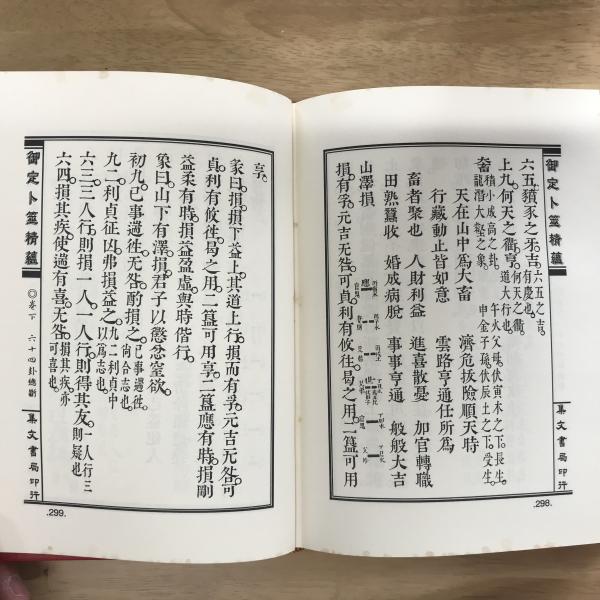 御定卜筮精蘊
集文書局印行
.298.
六五豶豕之牙吉。六五之吉。有慶也。
上九何天之衢亨。何天之衢。道大行也。
午火父母。伏寅木之下。長生。
申金子孫。伏辰土之下。受生。
畜
積小成高之卦。
龍潛大壑之象。
天在山中為大畜 濟危拔險順天時
行藏動止皆如意 雲路亨通任所為
畜者聚也 人財利益 進喜散憂 加官轉職
田熟蠶收 婚成病脫 事事亨通 般般大吉
山澤損
應
損。有孚。元吉无咎。可貞。利有攸往。曷之用。二簋可用
享。
彖曰。損。損下益上。其道上行。損而有孚。元吉无咎。可
貞。利有攸往。曷之用。二簋可用享。二簋應有時。損剛
益柔有時。損益盈虛。與時偕行。
象曰。山下有澤。損。君子以懲忿窒欲。
初九。已事遄往。无咎。酌損之。已事遄往。尚合志也。
九二。利貞。征凶。弗損益之。九二利貞。中以為志也。
六三。三人行。則損一人。一人行。則得其友。一人行。三則疑也。
六四。損其疾。使遄有喜。无咎。損其疾。亦可喜也。
御定卜筮精蘊
◎卷下 六十四卦總斷
集文書局印行
.299.